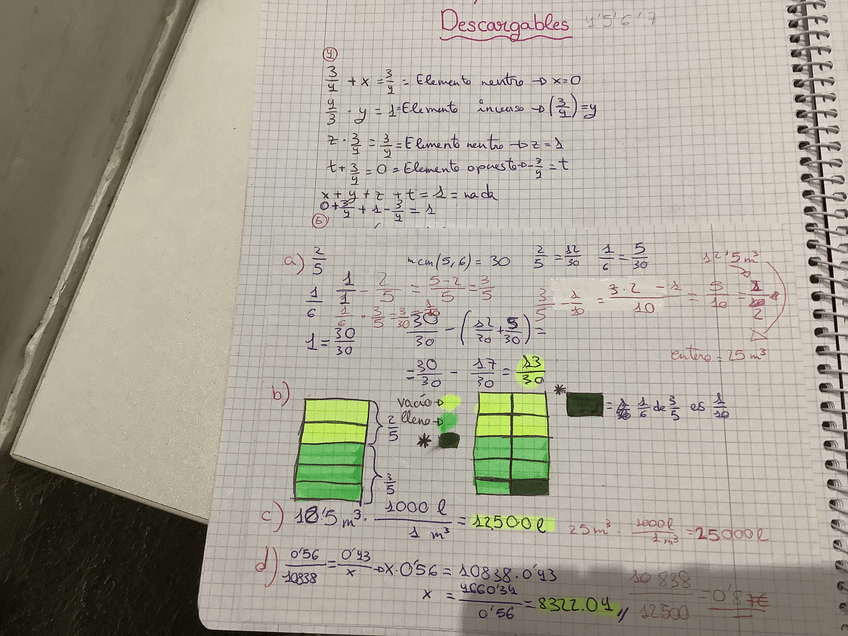 Descargables 4'5'6'7
4
3/4 + x = 3/4 = Elemento neutro → x=0
4/3 · y = 1 = Elemento inverso → (3/4) = y
z · 3/4 = 3/4 = Elemento neutro → z = 1
t + 3/4 = 0 = Elemento opuesto → -3/4 = t
x + y + z + t = 1 = nada
0 + 3/4 + 1 - 3/4 = 1
5
a) 2/5 mcm (5,6) = 30 2/5 = 12/30 1/6 = 5/30 12'5 m³
1/6 1/1 - 2/5 = 5-2/5 = 3/5 3/5 - 1/10 = 3·2 - 1/10 = 5/10 = 1/2
1/6 · 3/5 = 3/30 = 1/10
1 = 30/30 30/30 - (12/30 + 5/30) =
entero = 25 m³
= 30/30 - 17/30 = 13/30
b) vacío → 2/5 * = 1/6 de 3/5 es 1/10
lleno →
*
3/5
c) 12'5 m³ · 1000 l / 1 m³ = 12500 l 25 m³ · 1000 l / 1 m³ = 25000 l
d) 0'56/10838 = 0'43/x → x · 0'56 = 10838 · 0'43
x = 4660'34 / 0'56 = 8322.04 10838/12500 = 0'87€